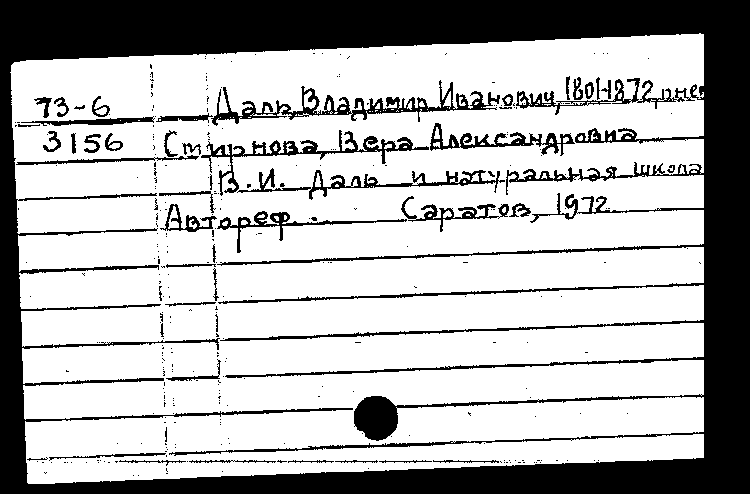 73-6 Даль, Владимир Иванович, 1801-1872, о нем
3156 Смирнова, Вера Александровна
В.И. Даль и натуральная школа
Автореф. . . Саратов, 1972